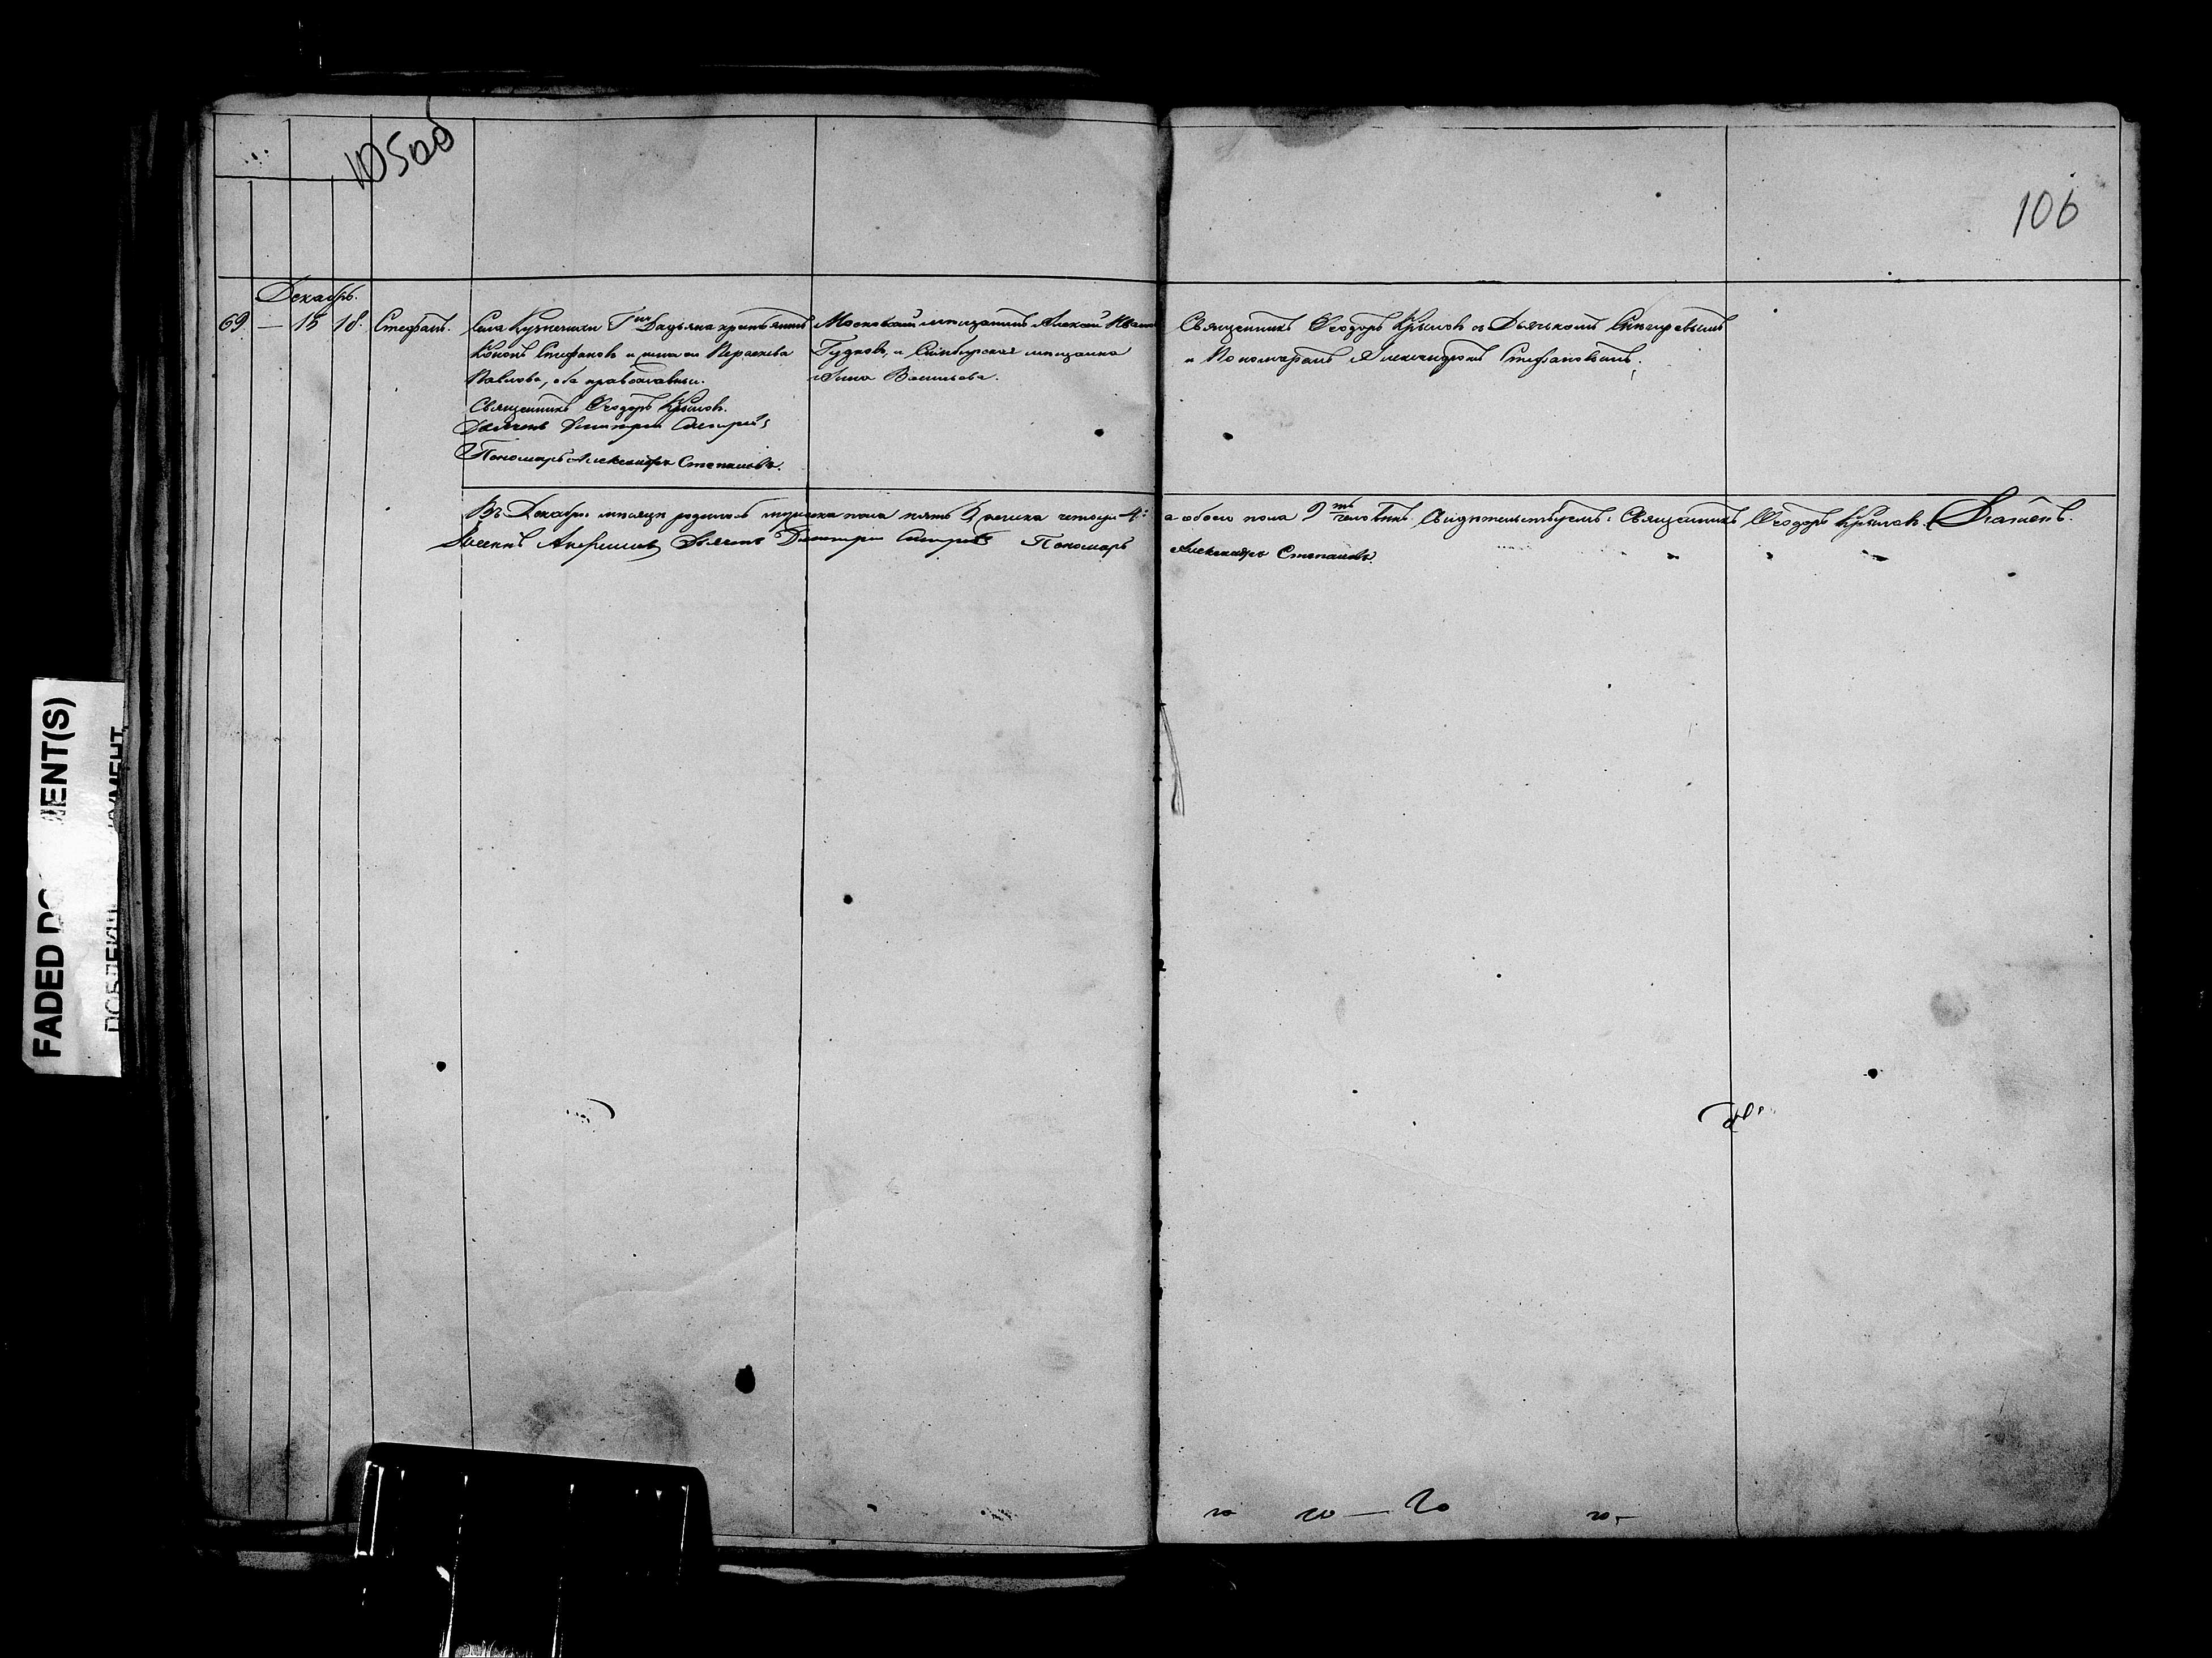 105об
106
Декабрь.
69. — 15 18. Стефанъ.
Села Кузнечихи Гна Дадьяна крестьянинъ
Кононъ Стефановъ и жена ево Параскева
Павлова, оба православные.
Священникъ Ѳеодоръ Крыловъ.
Дьячекъ Димитрій
Пономарь Александръ Степановъ.
Московской мещанинъ Алексей Ивановъ
Гудковъ, и Симбирская мещанка
Анна Васильева.
Священникъ Ѳеодоръ Крыловъ съ Дьячкомъ
и Пономаремъ Александромъ Стефановымъ.
Въ Декабрѣ месяцѣ родилось мужеска пола пять 5, женска четыре 4: а обоего пола 9ть человѣкъ. Свидетельствуетъ: Священникъ Ѳеодоръ Крыловъ. Діаконъ
Дьячекъ Димитрій Пономарь Александръ Степановъ.
FADED DO MENT(S)